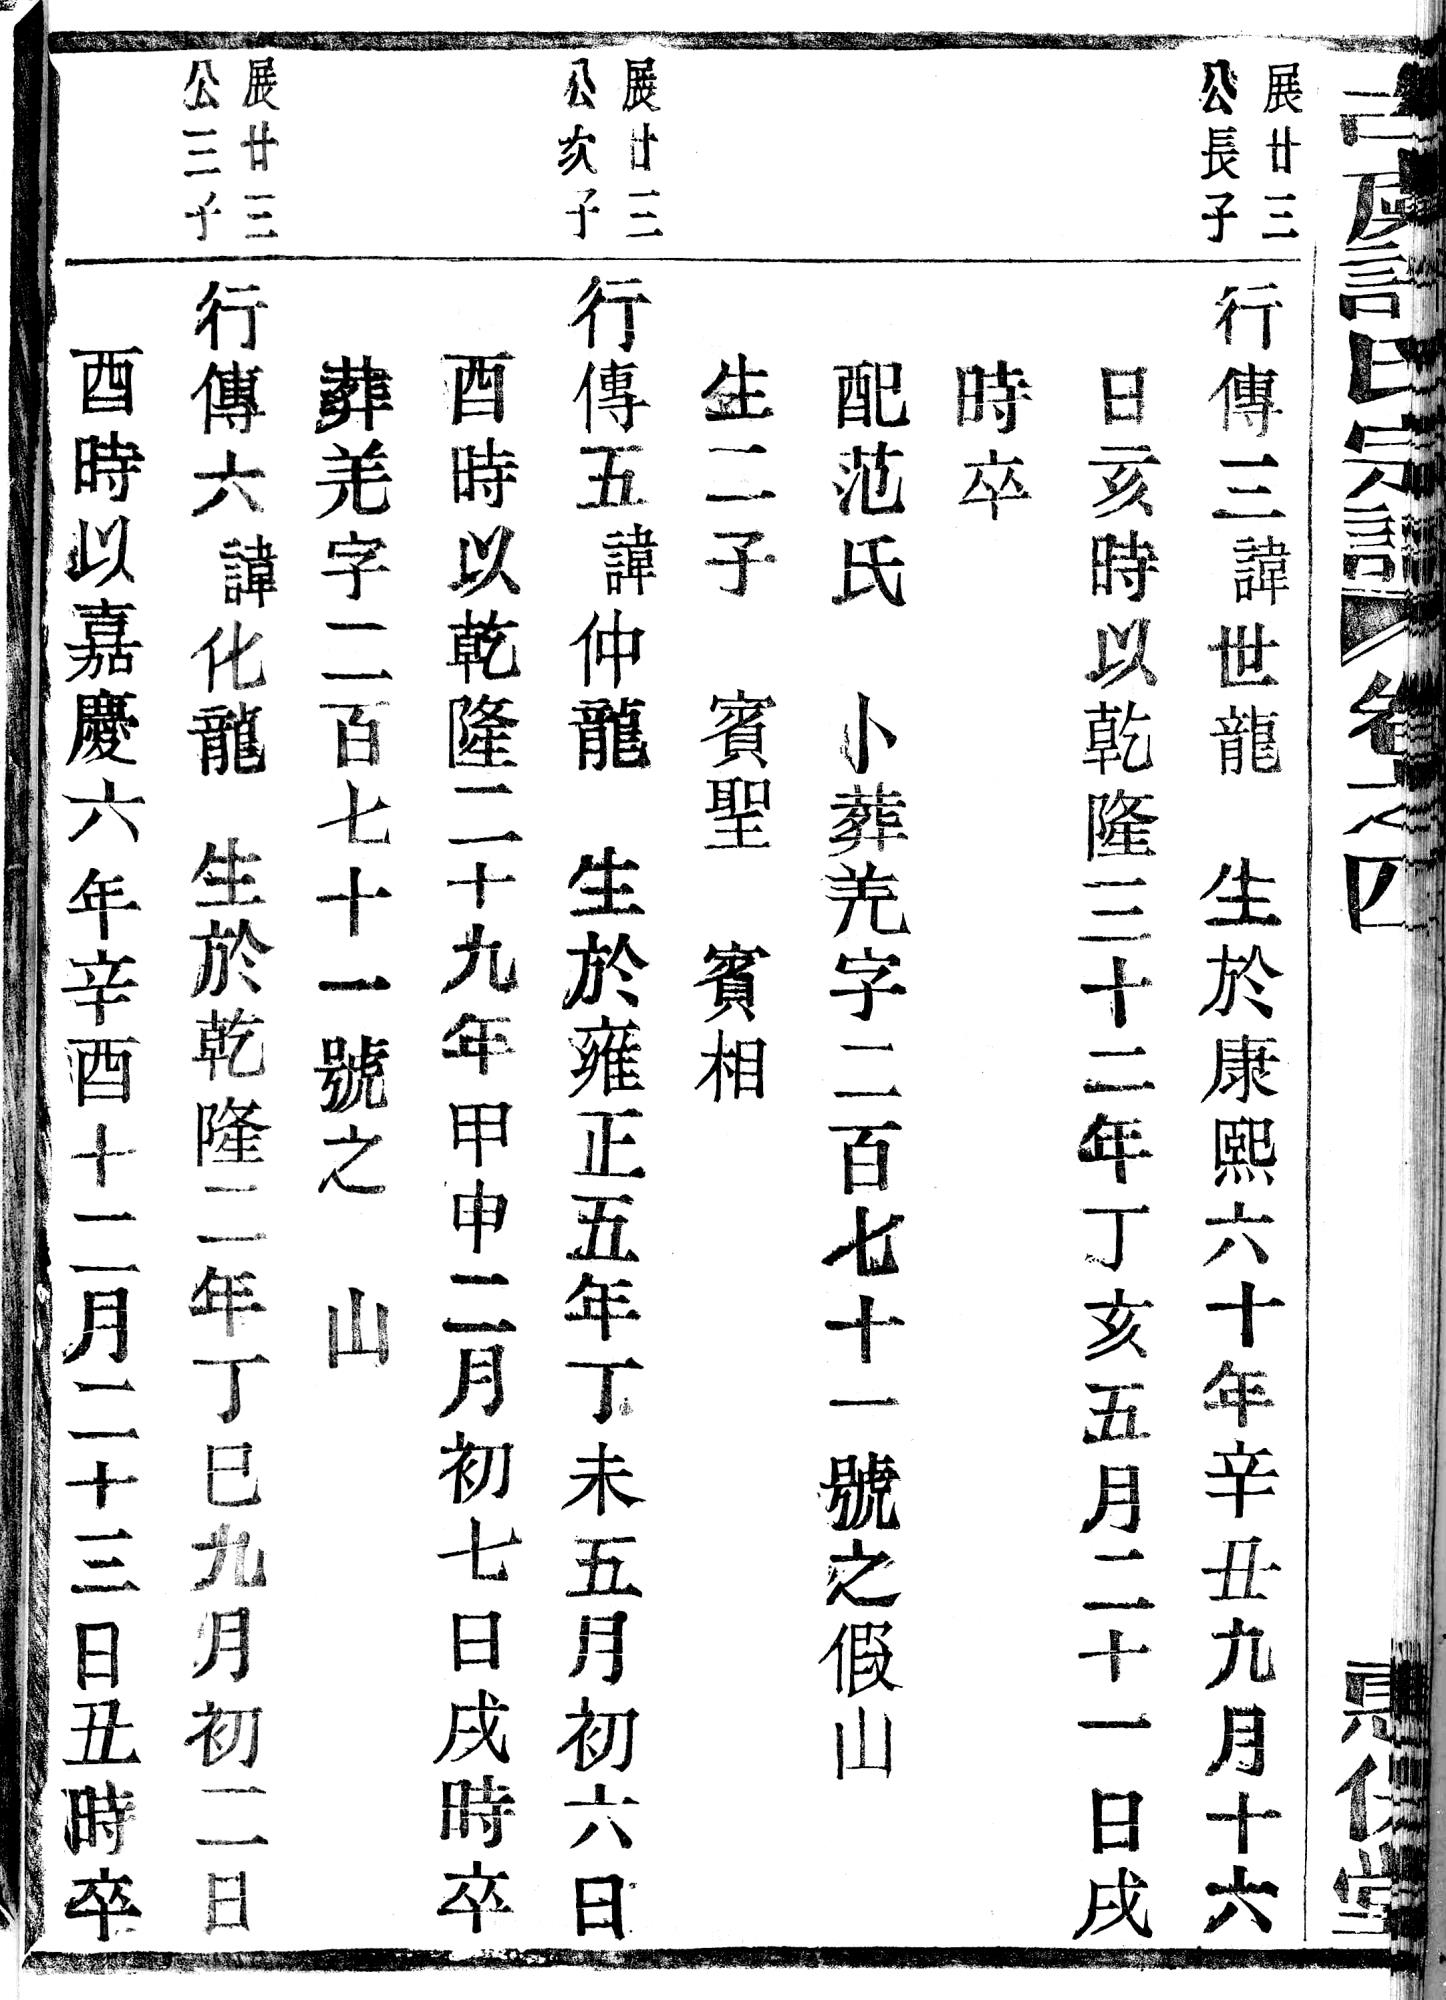 展廿三
公長子
行傳三諱世龍　生於康熙六十年辛丑九月十六
日亥時以乾隆三十二年丁亥五月二十一日戌
時卒
配范氏　小葬羌字二百七十一號之假山
生二子　賓聖　賓相
展廿三
公次子
行傳五諱仲龍　生於雍正五年丁未五月初六日
酉時以乾隆二十九年甲申二月初七日戌時卒
葬羌字二百七十一號之　山
展廿三
公三子
行傳六諱化龍　生於乾隆二年丁巳九月初二日
酉時以嘉慶六年辛酉十二月二十三日丑時卒
氏宗譜 卷之四
堂